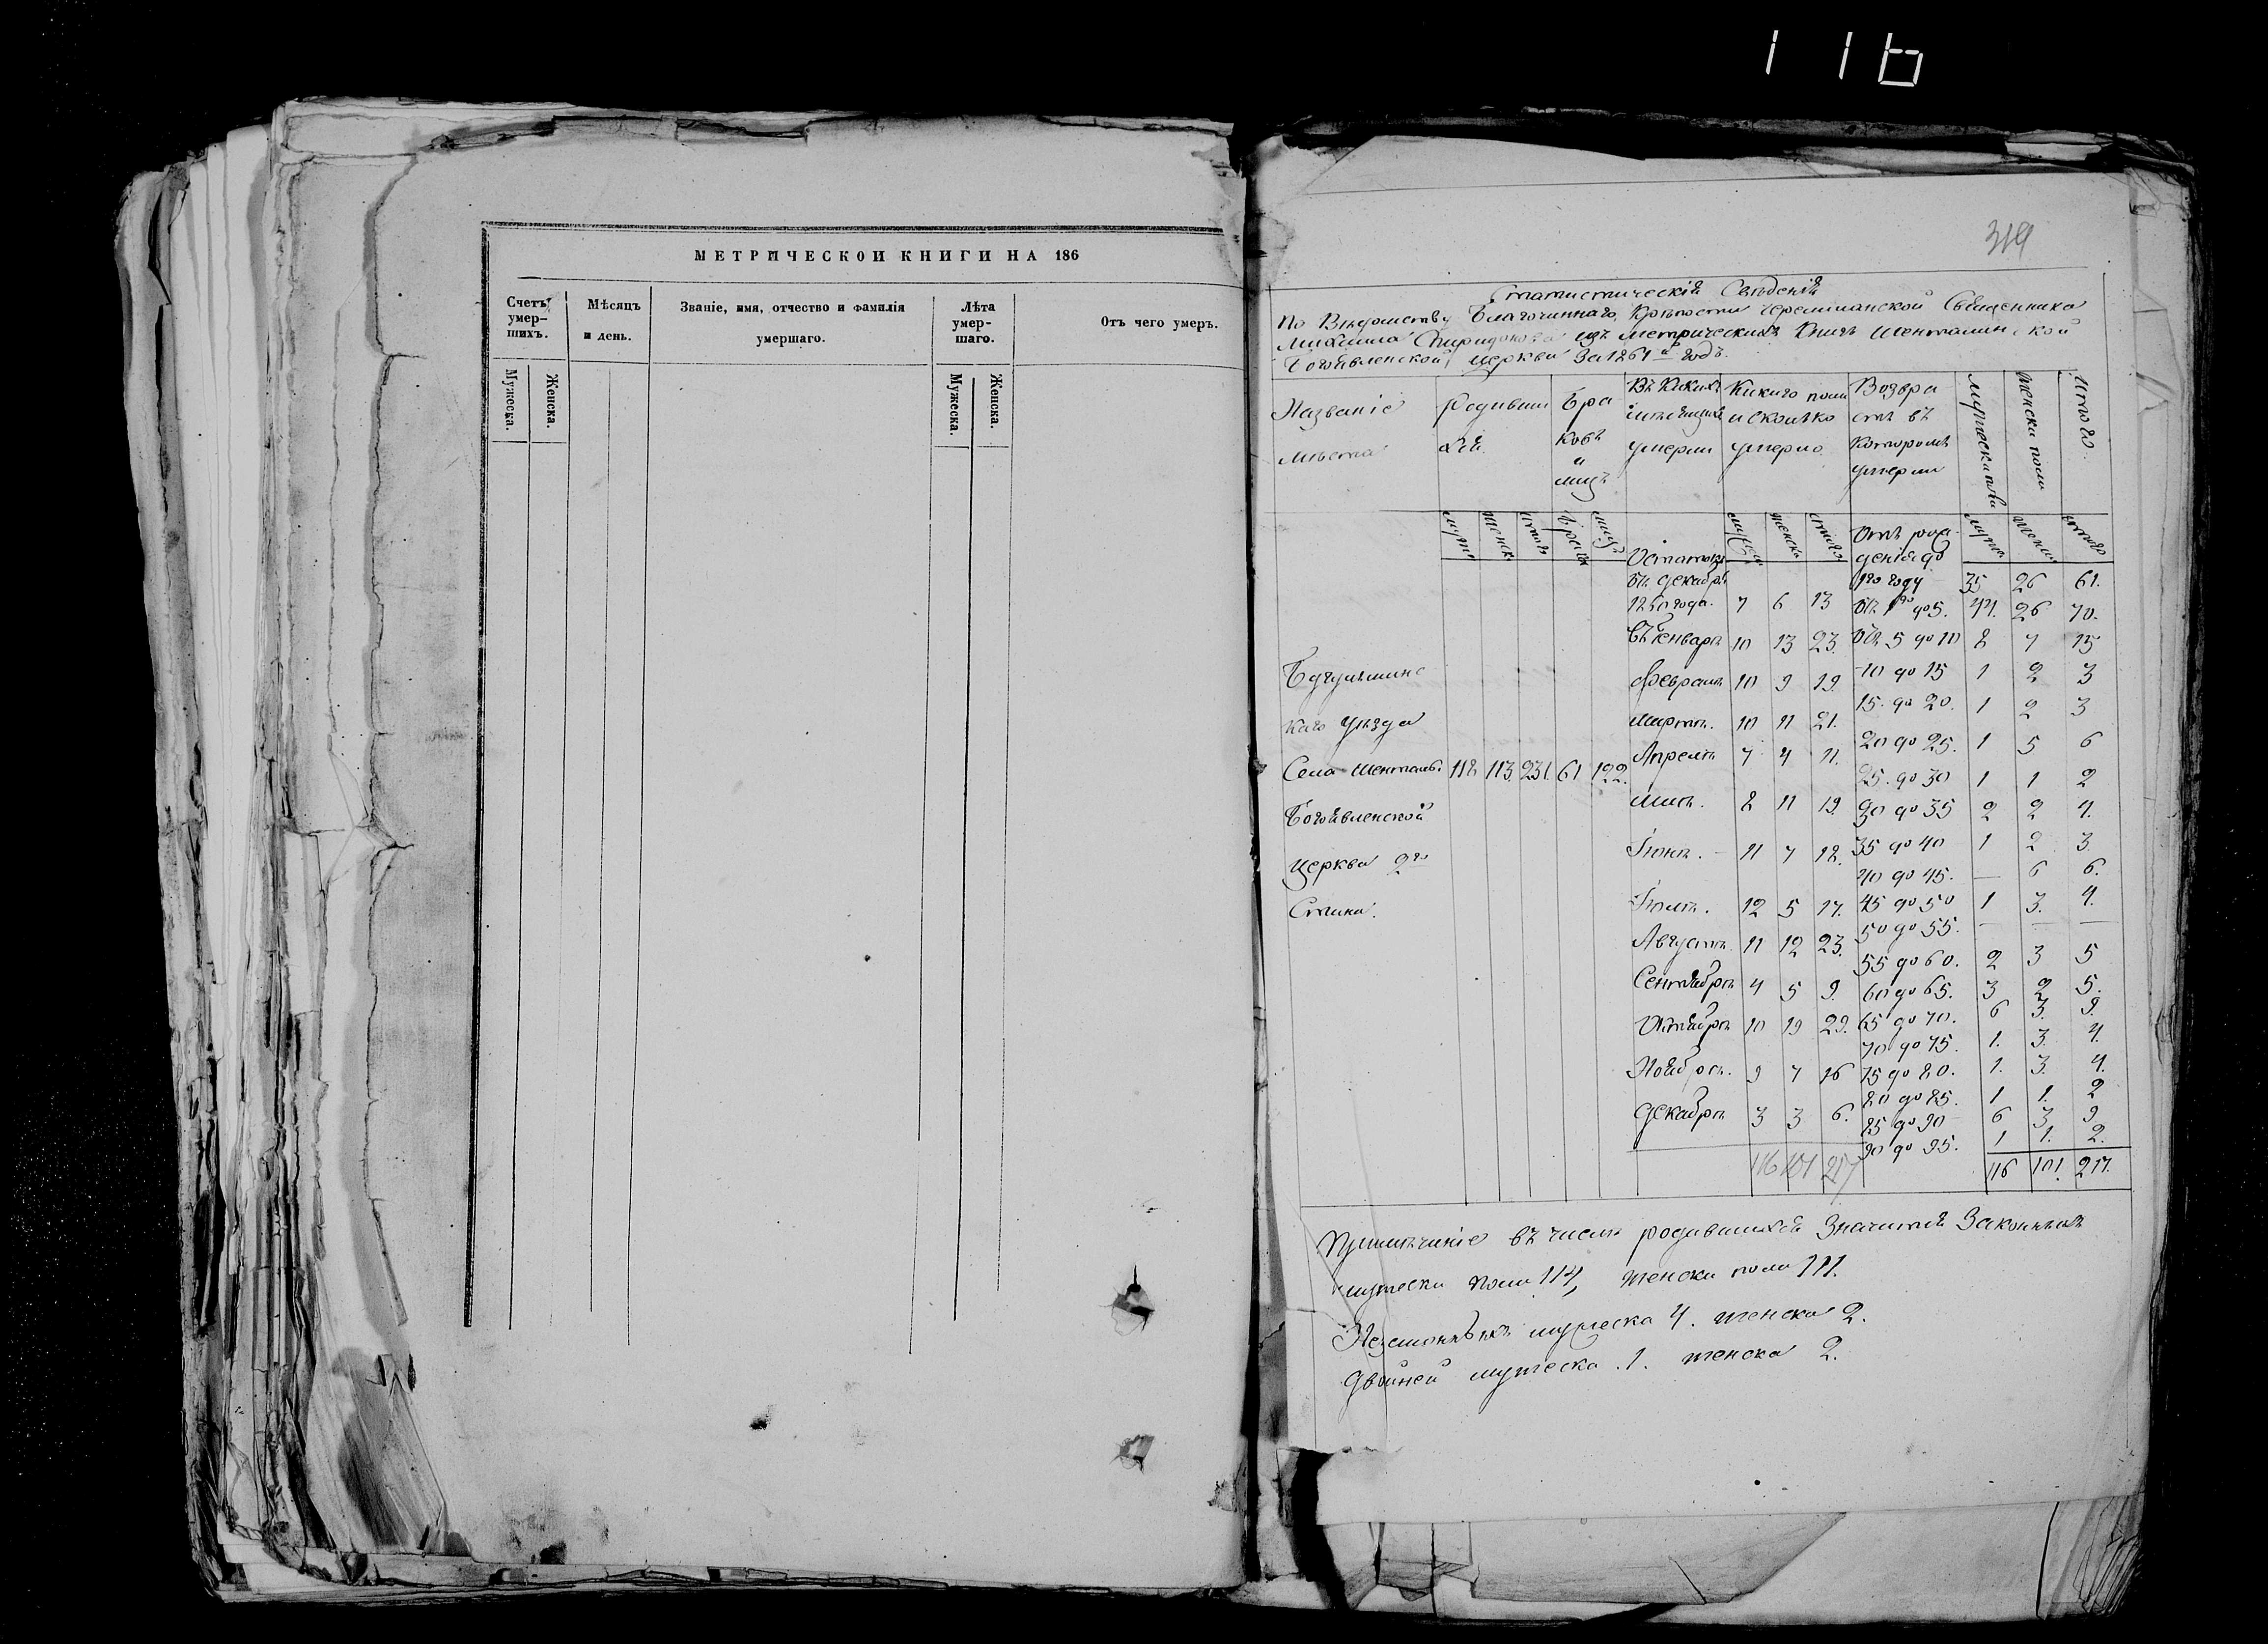 116
МЕТРИЧЕСКОИ КНИГИ НА 186
Счетъ умер-шихъ.
Мѣсяцъ и день.
Званіе, имя, отчество и фамилія умершаго.
Лѣта умер-шаго.
Отъ чего умеръ.
Мужеска. Женска.
Мужеска. Женска.
319
Статистическій Свѣденія
По Вѣдомству Благочиннаго, Крѣпости Черемшанской Священника
Михаила Спиридонова изъ метрическихъ Книгъ Шенталин, ской
Богоявленской, церкви За 1861й годъ.
Названіе мѣста
Родивших ся
Бра ковъ и лицъ
Въ Какихъ мѣсяцахъ умерли
Какаго пола и сколько умерло
Возра стъ въ которомъ умерли
Мужеска пола
Женска пола
Итого.
муж. женск. итого браков лицъ
муж. женска итого
муж. женск. итого
Бугульминс
каго уѣзда
Села Шенталы 118 113 231. 61 122.
Богоявленской
церкви 2го
Стана.
Остатокъ отъ декабря 1860 года. 7 6 13
Въ Январѣ 10 13 23.
Февралѣ 10 9 19.
Мартѣ. 10 11 21.
Апрелѣ 7 4 11.
Маѣ. 8 11 19
Іюнѣ. 11 7 18.
Іюлѣ. 12 5 17.
Августѣ 11 12 23.
Сентябрѣ 4 5 9.
Октябрѣ 10 19 29.
Ноябрѣ. 9 7 16
Декабрѣ 3 3 6.
116 101 217
Отъ рож-денія до 1го году 35 26 61.
Отъ 1го до 5. 44. 26 70.
Отъ 5 до 10 8 7 15
10 до 15 1 2 3
15. до 20. 1 2 3
20 до 25. 1 5 6
25. до 30 1 1 2
30 до 35 2 2 4.
35 до 40 1 2 3.
40 до 45. — 6 6.
45 до 50 1 3. 4.
50 до 55. — — —
55 до 60. 2 3 5
60 до 65. 3 2 5.
65 до 70. 6 3. 9.
70 до 75. 1. 3. 4.
75 до 80. 1. 3. 4.
80 до 85. 1 1. 2
85 до 90 6 3 9
90 до 95. 1 1. 2.
116 101. 217.
Примѣчаніе въ числѣ родившихся Значится Законныхъ
мужеска пола 114, женска пола 111.
Незаконныхъ мужеска 4. женска 2.
Двойней мужеска. 1. женска 2.